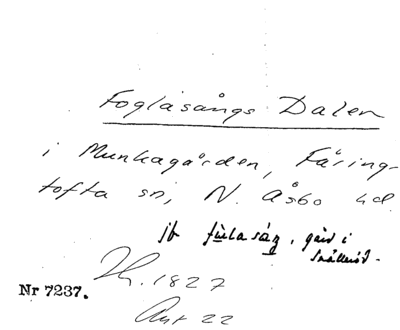 Foglasångs Dalen
i Munkagården, Färing-
tofta sn, N. Åsbo hd.
jfr fùlasáŋ, gård i
Snålleröd.
1827
Nr 7237.
Akt 22